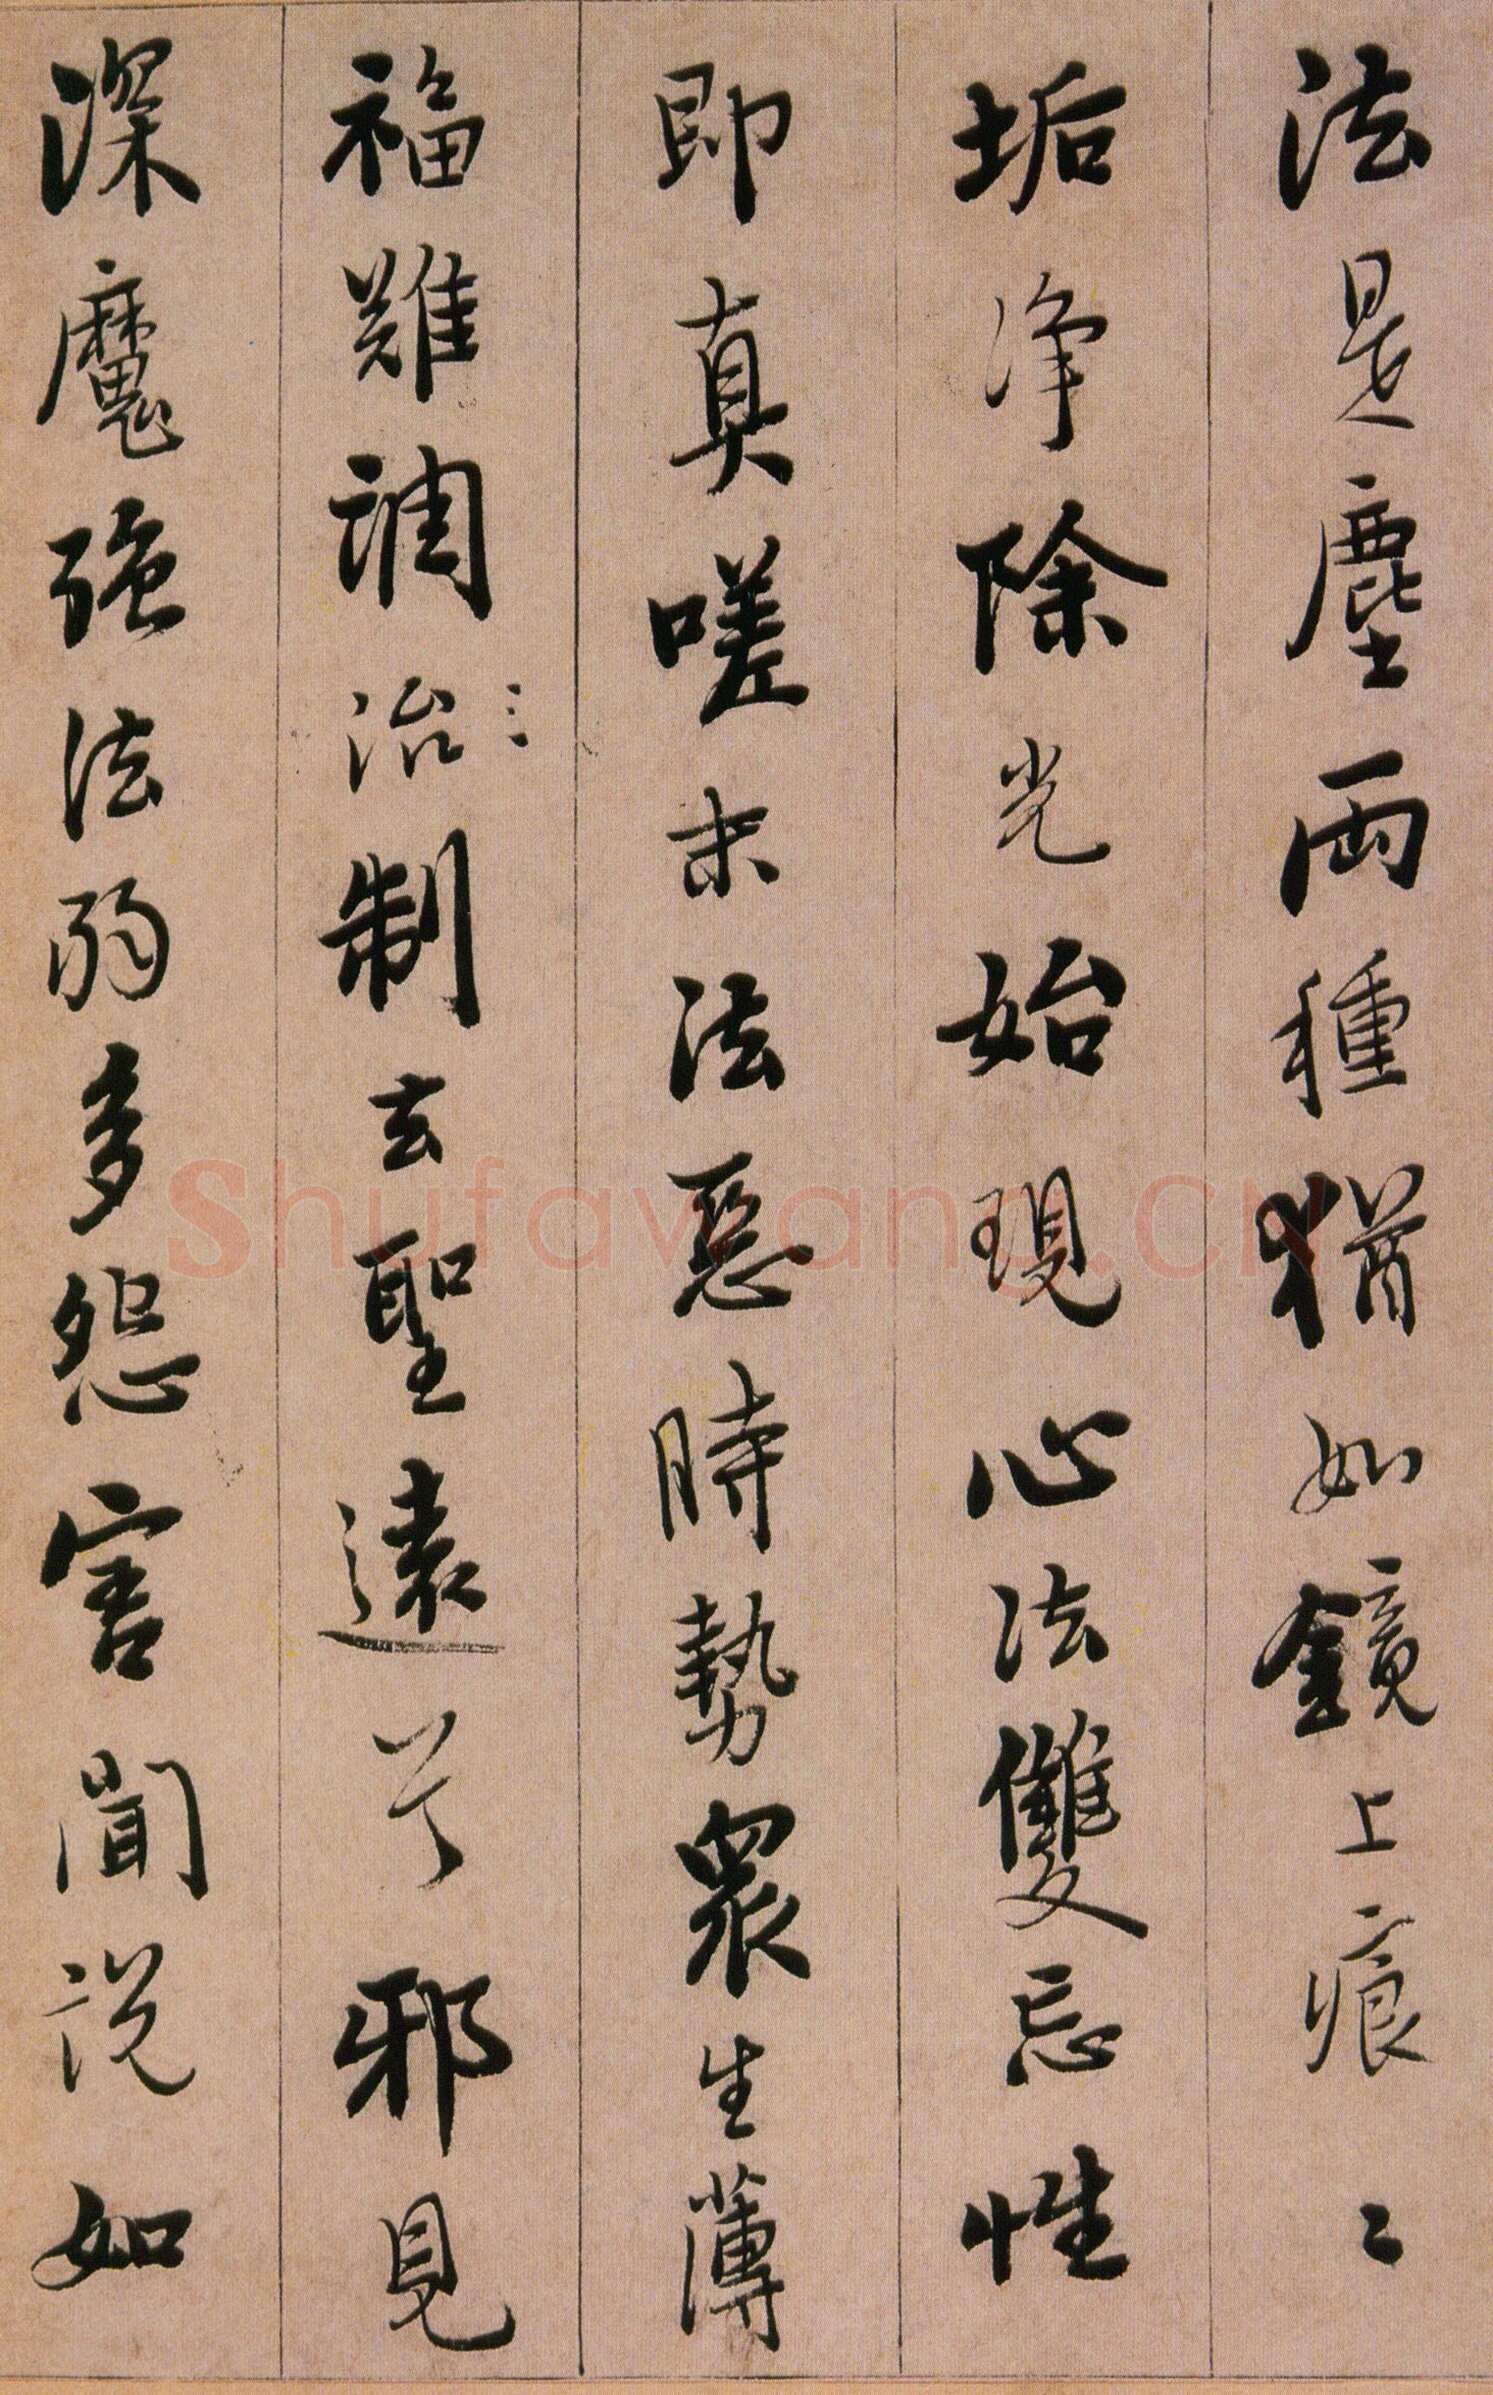 法是塵兩種猶如鏡上痕〻
垢淨除光始現心法雙忘性
即真嗟末法惡時勢眾生薄
福難調治制去聖遠兮邪見
深魔強法弱多怨害聞說如
Shufawang.CN